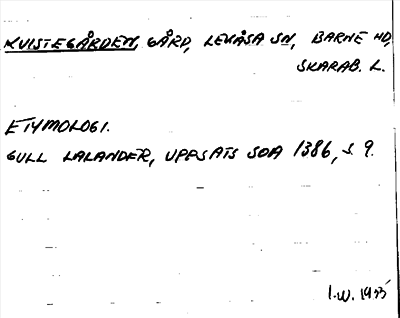 KVISTEGÅRDEN, GÅRD, LEKÅSA SN, BARNE HD,
SKARAB. L.
ETYMOLOGI.
GULL LALANDER, UPPSATS SOA 1386, S. 9.
I.W. 1955